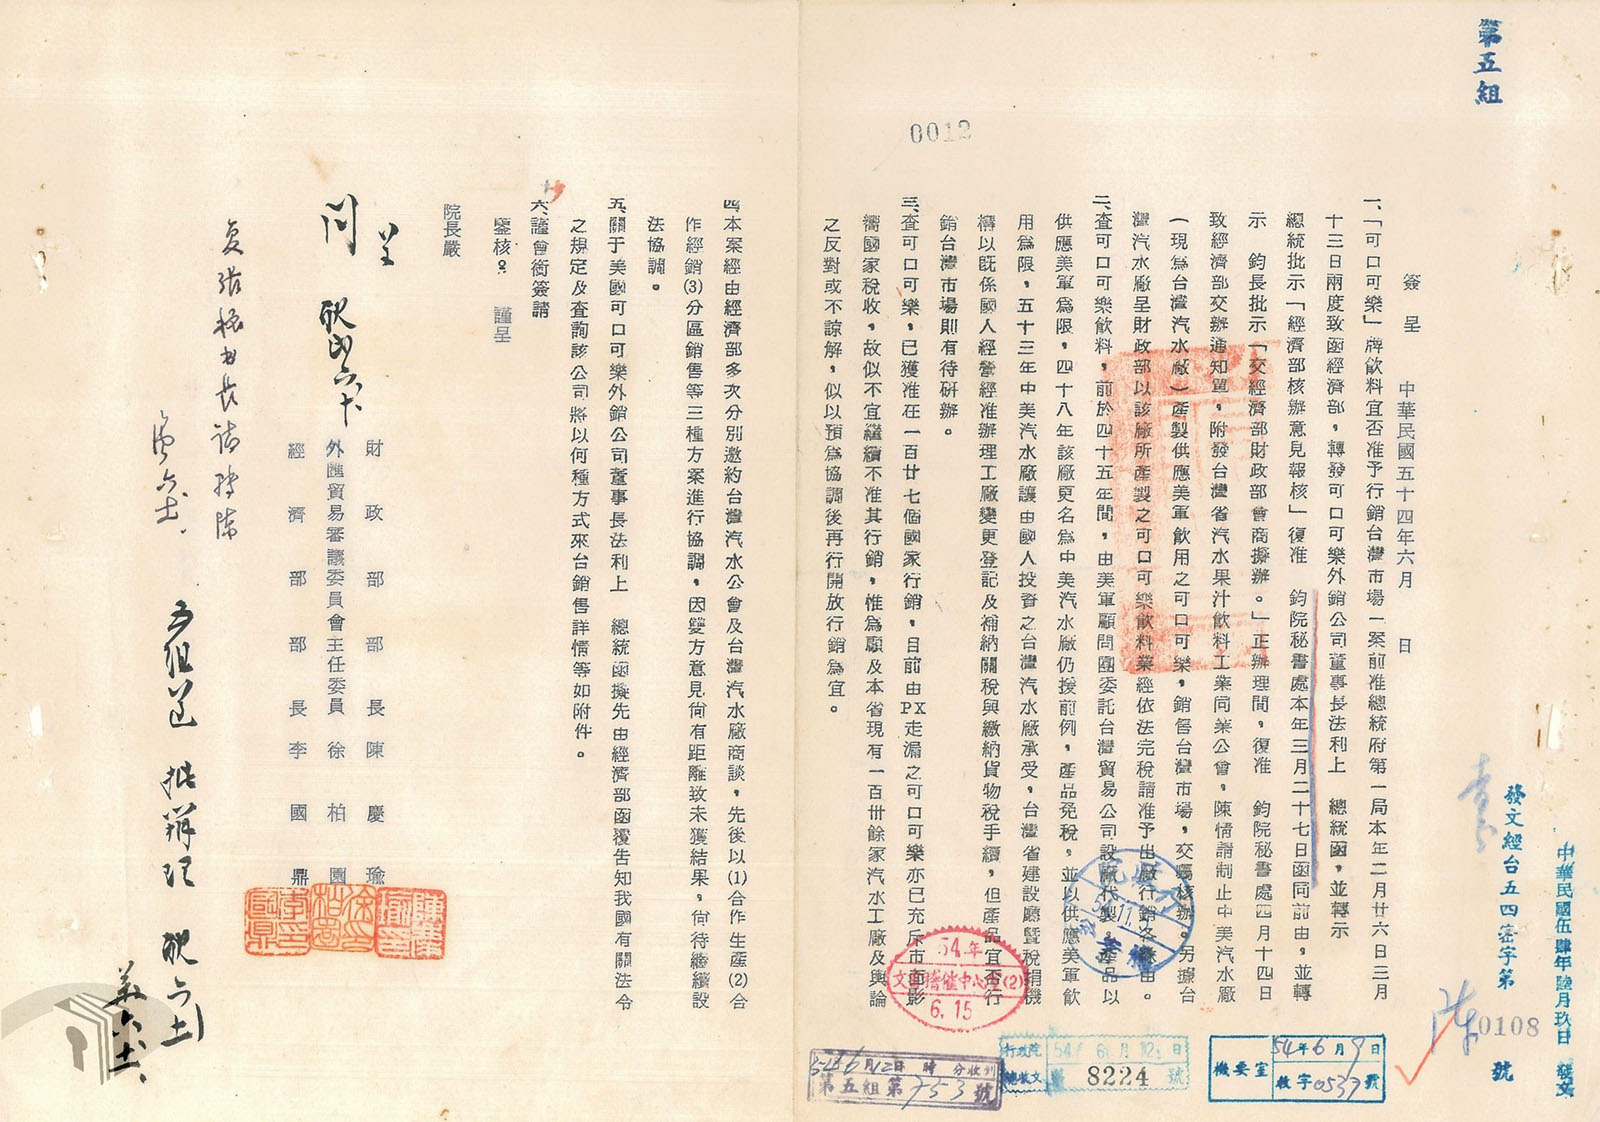 第五組
0012
簽呈
中華民國五十四年六月　日
一、「可口可樂」牌飲料宜否准予行銷台灣市場一案前准總統府第一局本年二月廿六日三月
十三日兩度致函經濟部，轉發可口可樂外銷公司董事長法利上　總統函，並轉示
總統批示「經濟部核辦意見報核」復准　鈞院秘書處本年三月二十七日函同前由，並轉
示　鈞長批示「交經濟部財政部會商擬辦。」正辦理間，復准　鈞院秘書處四月十四日
致經濟部交辦通知單，附發台灣省汽水果汁飲料工業同業公會，陳情請制止中美汽水廠
（現為台灣汽水廠）產製供應美軍飲用之可口可樂，銷售台灣市場，交囑核辦。另據台
灣汽水廠呈財政部以該廠所產製之可口可樂飲料業經依法完稅請准予出廠行銷各由。
二、查可口可樂飲料，前於四十五年間，由美軍顧問團委託台灣貿易公司設廠代製，產品以
供應美軍為限，四十八年該廠更名為中美汽水廠仍援前例，產品免稅，並以供應美軍飲
用為限，五十三年中美汽水廠讓由國人投資之台灣汽水廠承受，台灣省建設廳暨稅捐機
構以既係國人經營經准辦理工廠變更登記及補納關稅與繳納貨物稅手續，但產品宜否行
銷台灣市場則有待研辦。
三、查可口可樂，已獲准在一百廿七個國家行銷，目前由PX走漏之可口可樂亦已充斥市面影
嚮國家稅收，故似不宜繼續不准其行銷，惟為顧及本省現有一百卅餘家汽水工廠及輿論
之反對或不諒解，似以預為協調後再行開放行銷為宜。
四、本案經由經濟部多次分別邀約台灣汽水公會及台灣汽水廠商談，先後以(1)合作生產(2)合
作經銷(3)分區銷售等三種方案進行協調，因雙方意見尚有距離致未獲結果，尚待繼續設
法協調。
五、關于美國可口可樂外銷公司董事長法利上　總統函擬先由經濟部函覆告知我國有關法令
之規定及查詢該公司將以何種方式來台銷售詳情等如附件。
六、謹會銜簽請
鑒核。　謹呈
院長嚴
財政部長陳慶瑜
外匯貿易審議委員會主任委員徐柏園
經濟部長李國鼎
呈
閱
五組送
中華民國伍肆年陸月玖日　發文
發文經台五四密字第　0108　號
機要室
54年6月9日
收字0537號
行政院
總收文
54年6月12日
8224號
6月12日　時　分收到
第五組第753號
54.年
文書稽催中心登(2)
6.15